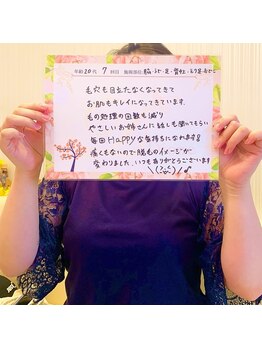 年齢20代 7回目 施術部位 脇・ひじ・足
毛穴も目立たなくなってきて
お肌もキレイになってきています
毛の処理の回数も減り
やさしいお姉さんに話しも聞いてもらい
毎回Happyな気持ちになれます!
痛くもないので脱毛のイメージが
変わりました いつもありがとうございます